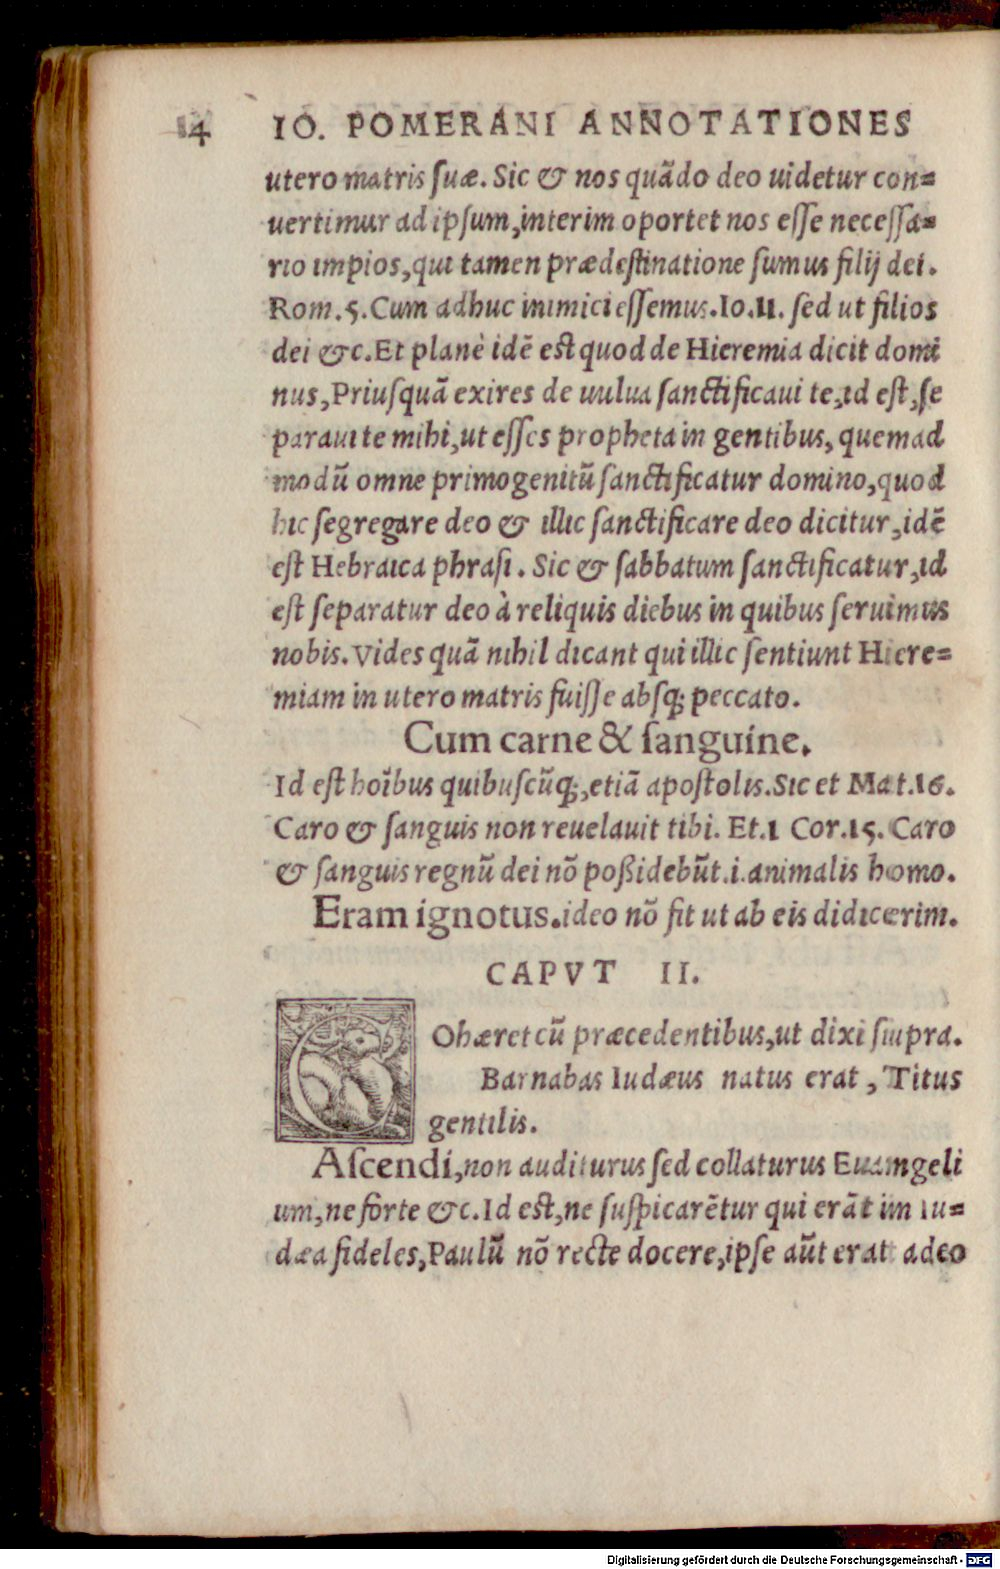 14 IO. POMERANI ANNOTATIONES
utero matris ſuæ. Sic & nos quãdo deo uidetur con=
uertimur ad ipſum, interim oportet nos eſſe neceſſa=
rio impios, qui tamen prædeſtinatione ſumus filij dei.
Rom. 5. Cum adhuc inimici eſſemus. Io. 11. ſed ut filios
dei &c. Et planè idẽ eſt quod de Hieremia dicit domi
nus, Priuſquã exires de uulua ſanctificaui te, id eſt, ſe
paraui te mihi, ut eſſes propheta in gentibus, quemad
modũ omne primogenitũ ſanctificatur domino, quod
hic ſegregare deo & illic ſanctificare deo dicitur, idẽ
eſt Hebraica phraſi. Sic & ſabbatum ſanctificatur, id
eſt ſeparatur deo à reliquis diebus in quibus ſeruimus
nobis. Vides quã nihil dicant qui illic ſentiunt Hiere=
miam in utero matris fuiſſe abſq; peccato.
Cum carne & ſanguine.
Id eſt hoĩbus quibuſcũq;, etiã apoſtolis. Sic et Mat. 16.
Caro & ſanguis non reuelauit tibi. Et. 1 Cor. 15. Caro
& ſanguis regnũ dei nõ poßidebũt .i. animalis homo.
Eram ignotus. ideo nõ fit ut ab eis didicerim.
CAPVT II.
COhæret cũ præcedentibus, ut dixi ſupra.
Barnabas Iudæus natus erat, Titus
gentilis.
Aſcendi, non auditurus ſed collaturus Euamgeli
um, ne forte &c. Id eſt, ne ſuſpicarẽtur qui erãt im Iu=
dæa fideles, Paulũ nõ recte docere, ipſe aũt erat adeo
Digitalisierung gefördert durch die Deutsche Forschungsgemeinschaft - DFG